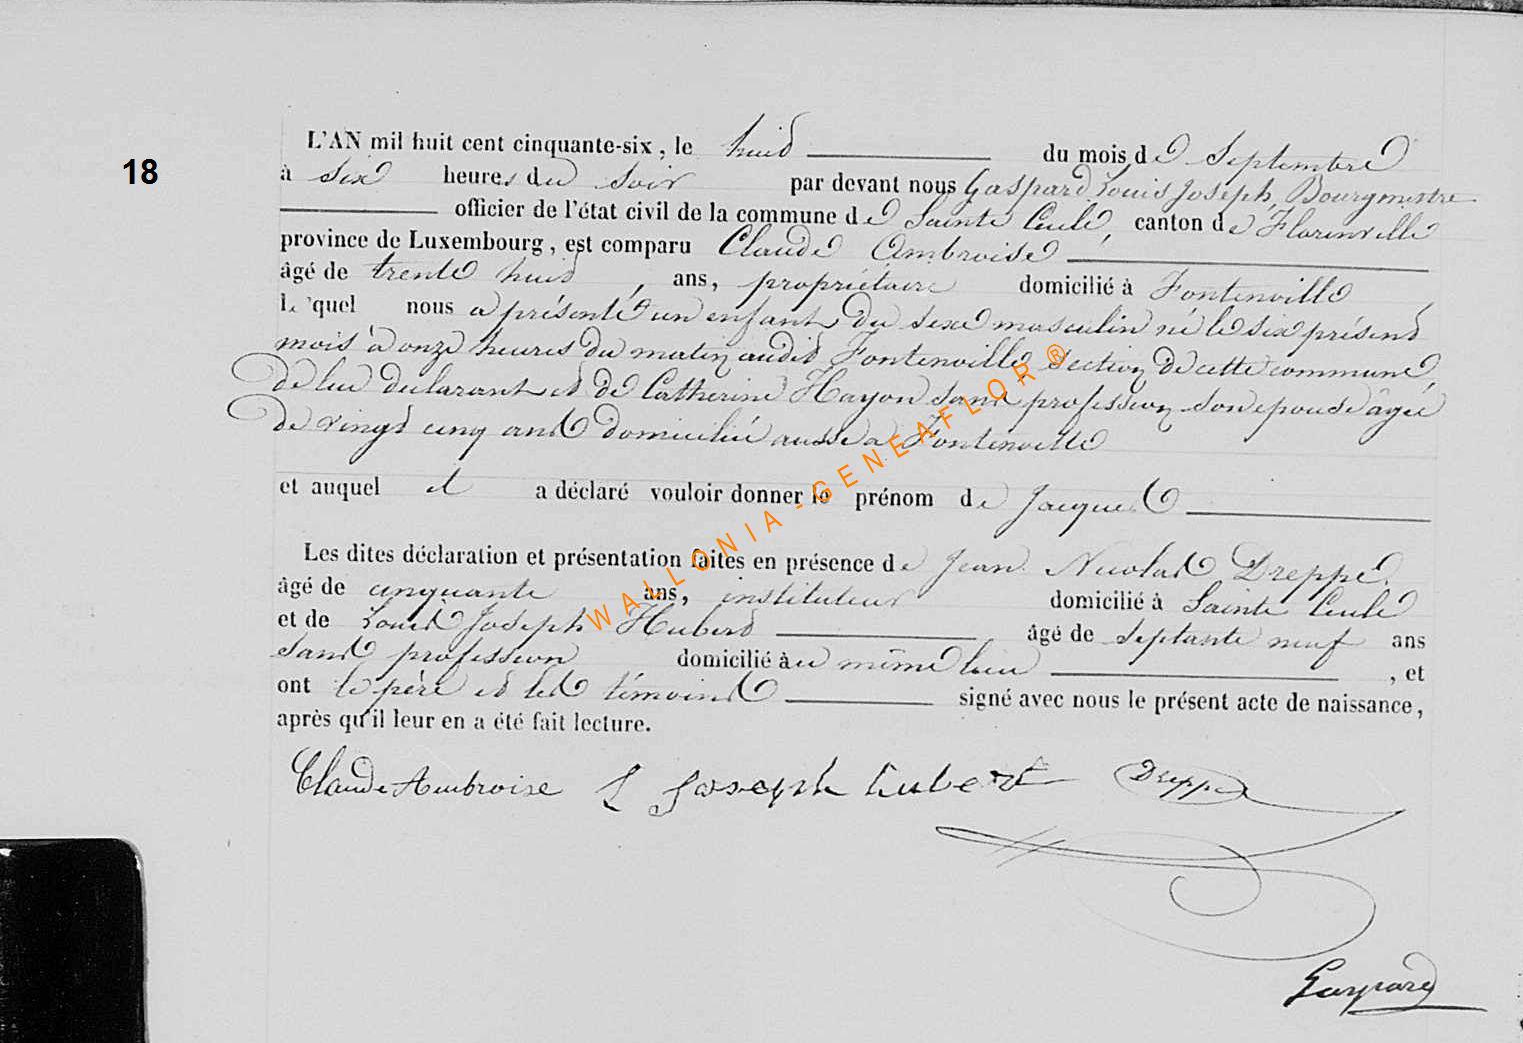 18
L'AN mil huit cent cinquante-six, le huit du mois de Septembre
à six heures du soir par devant nous Gaspard Louis Joseph, Bourgmestre
officier de l'état civil de la commune de Sainte Cecile, canton de Florenville
province de Luxembourg, est comparu Claude Ambroise
âgé de trente huit, ans, propriétaire domicilié à Fontenoille,
Le'quel nous a présenté un enfant du sexe masculin né le six présent
mois à onze heures du matin audit Fontenoille, section de cette commune,
de lui declarant et de Catherine Hayon sans profession son epouse âgée
de vingt cinq ans domiciliée aussi a Fontenoille
et auquel il a déclaré vouloir donner le prénom de Jacques
Les dites déclaration et présentation faites en présence de Jean Nicolas Dreppe,
âgé de cinquante ans, instituteur domicilié à Sainte Cecile
et de Louis Joseph Hubert âgé de septante neuf ans
sans profession domicilié au même lieu, et
ont le père et les témoins signé avec nous le présent acte de naissance,
après qu'il leur en a été fait lecture.
Claude Ambroise L Joseph hubert Dreppe
Gaspard
WALLONIA - GENEAFLOR ®